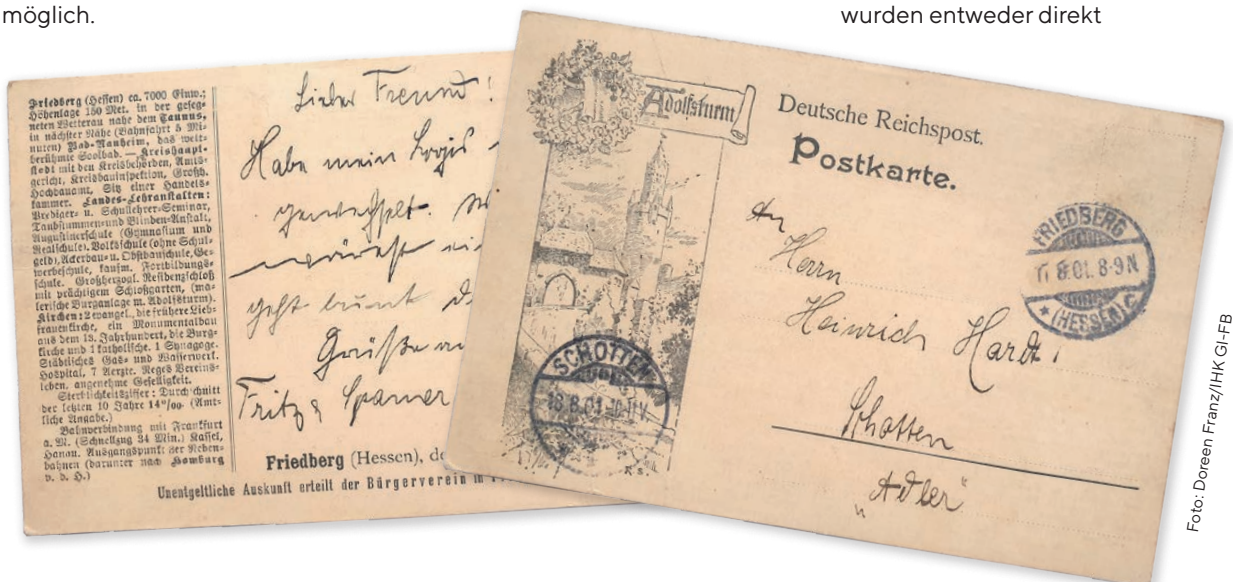 möglich.
wurden entweder direkt
Friedberg (Hessen) ca. 7000 Einw.;
Höhenlage 150 Met. in der geseg-
neten Wetterau nahe dem Taunus,
in nächster Nähe (Bahnfahrt 5 Mi-
nuten) Bad-Nauheim, das welt-
berühmte Soolbad. — Kreishaupt-
stadt mit den Kreisbehörden, Amts-
gericht, Kreisbauinspektion, Großh.
Hochbauamt, Sitz einer Handels-
kammer. Landes-Lehranstalten:
Prediger- u. Schullehrer-Seminar,
Taubstummen- und Blinden-Anstalt,
Augustinerschule (Gymnasium und
Realschule). Volksschule (ohne Schul-
geld), Ackerbau- u. Obstbauschule, Ge-
werbeschule, kaufm. Fortbildungs-
schule. Großherzogl. Residenzschloß
mit prächtigem Schloßgarten, (ma-
lerische Burganlage m. Adolfsturm).
Kirchen: 2 evangel., die frühere Lieb-
frauenkirche, ein Monumentalbau
aus dem 13. Jahrhundert, die Burg-
kirche und 1 katholische. 1 Synagoge.
Städtisches Gas- und Wasserwerk.
Hospital. 7 Aerzte. Reges Vereins-
leben, angenehme Geselligkeit.
Sterblichkeitsziffer: Durchschnitt
der letzten 10 Jahre 14°/oo. (Amt-
liche Angabe.)
Bahnverbindung mit Frankfurt
a. M. (Schnellzug 34 Min.) Kassel,
Hanau. Ausgangspunkt der Neben-
bahnen (darunter nach Homburg
v. d. H.)
Lieber Freund!
Habe mein Logis
gewechselt.
geht bunt
Grüße
Fritz Spamer
Friedberg (Hessen), de
Unentgeltliche Auskunft erteilt der Bürgerverein in
Adolfsturm
Deutsche Reichspost.
Postkarte.
An
Herrn
Heinrich Hardt
Schotten
"Adler"
FRIEDBERG
8.01. 8-9N
* (HESSEN) C
SCHOTTEN
18.8.01. 10-11V
Foto: Doreen Franz/IHK GI-FB